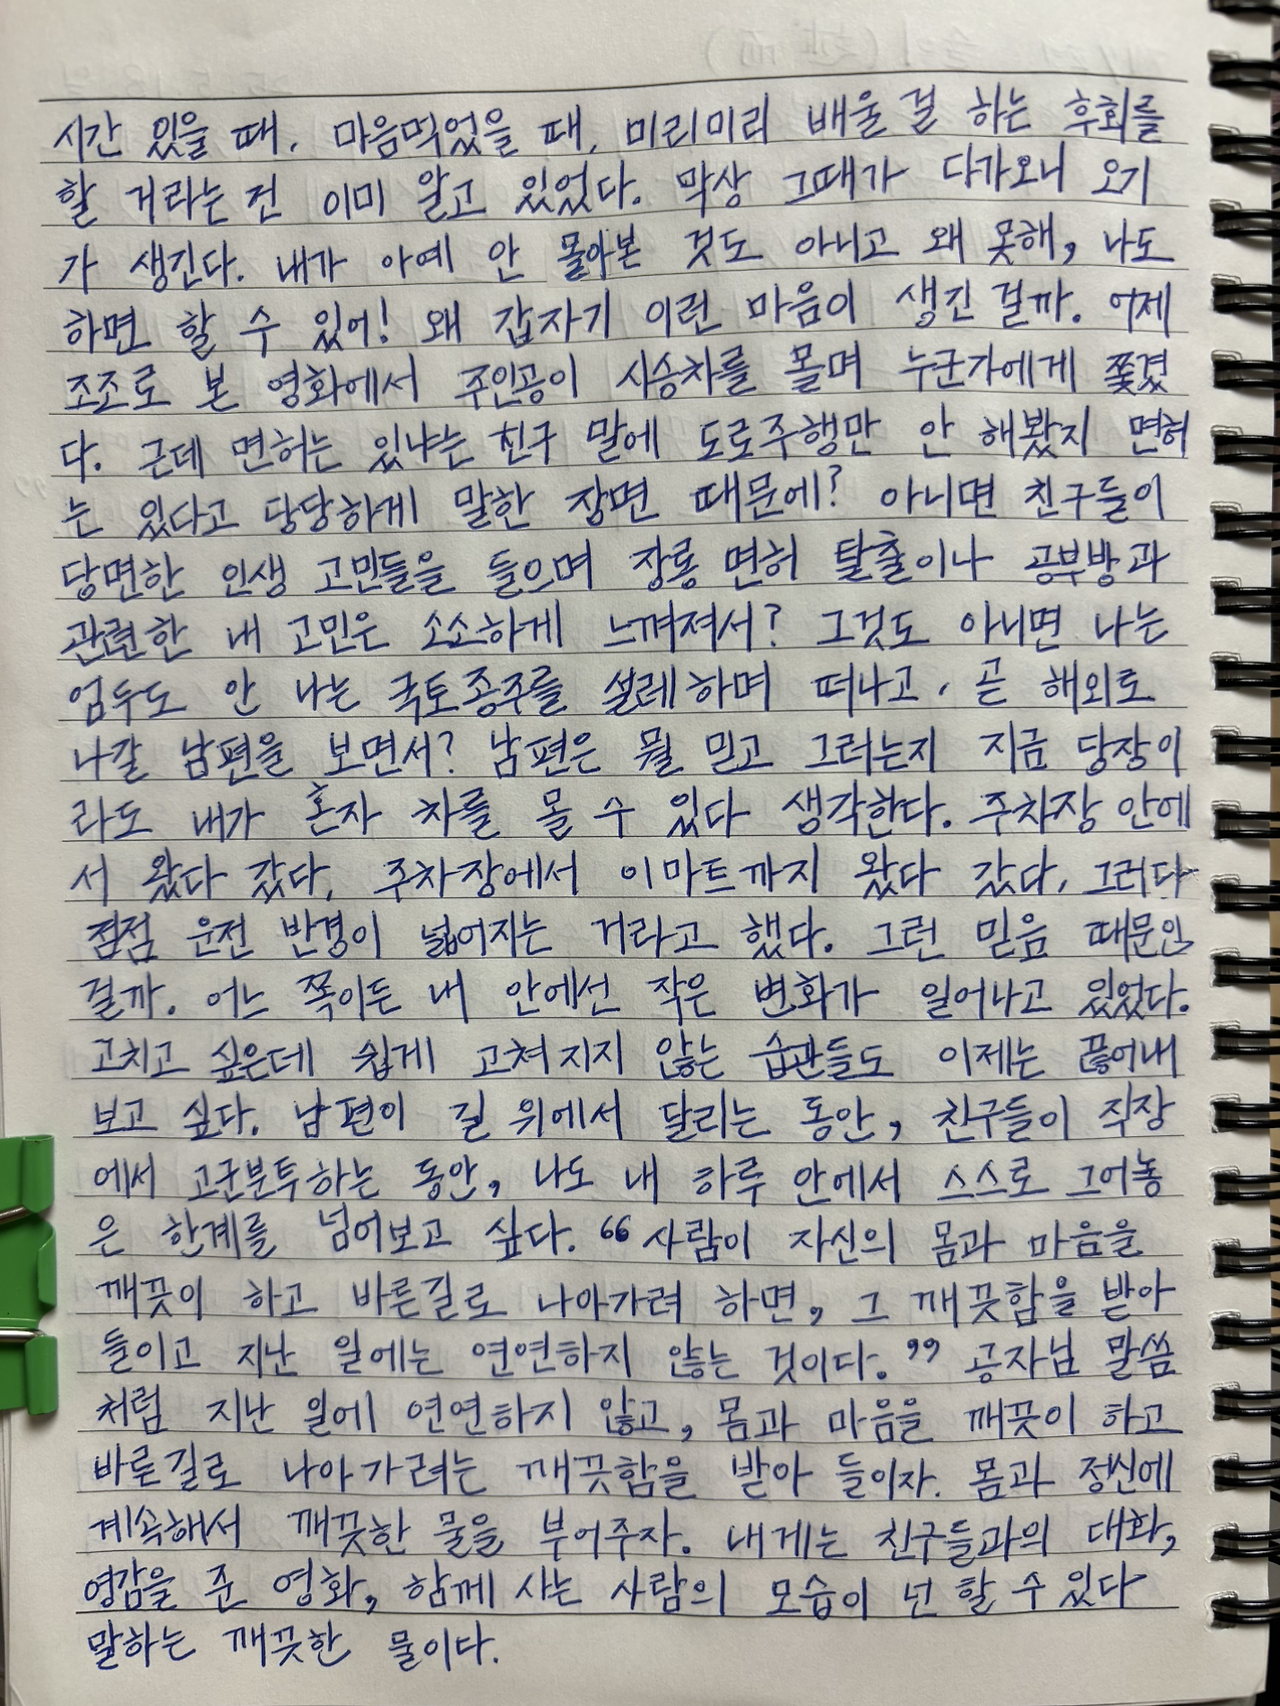 시간 있을 때, 마음먹었을 때, 미리미리 배울 걸 하는 후회를
할 거라는 건 이미 알고 있었다. 막상 그때가 다가오니 오기
가 생긴다. 내가 아예 안 몰아본 것도 아니고 왜 못해, 나도
하면 할 수 있어! 왜 갑자기 이런 마음이 생긴 걸까. 어제
조조로 본 영화에서 주인공이 시승차를 몰며 누군가에게 쫓겼
다. 근데 면허는 있냐는 친구 말에 도로주행만 안 해봤지 면허
는 있다고 당당하게 말한 장면 때문에? 아니면 친구들이
당면한 인생 고민들을 들으며 장롱 면허 탈출이나 공부방과
관련한 내 고민은 소소하게 느껴져서? 그것도 아니면 나는
엄두도 안 나는 국토종주를 설레하며 떠나고, 곧 해외로
나갈 남편을 보면서? 남편은 뭘 믿고 그러는지 지금 당장이
라도 내가 혼자 차를 몰 수 있다 생각한다. 주차장 안에
서 왔다 갔다, 주차장에서 이마트까지 왔다 갔다, 그러다
점점 운전 반경이 넓어지는 거라고 했다. 그런 믿음 때문인
걸까. 어느 쪽이든 내 안에선 작은 변화가 일어나고 있었다.
고치고 싶은데 쉽게 고쳐지지 않는 습관들도 이제는 끊어내
보고 싶다. 남편이 길 위에서 달리는 동안, 친구들이 직장
에서 고군분투하는 동안, 나도 내 하루 안에서 스스로 그어놓
은 한계를 넘어보고 싶다. “사람이 자신의 몸과 마음을
깨끗이 하고 바른길로 나아가려 하면, 그 깨끗함을 받아
들이고 지난 일에는 연연하지 않는 것이다.” 공자님 말씀
처럼 지난 일에 연연하지 않고, 몸과 마음을 깨끗이 하고
바른길로 나아가려는 깨끗함을 받아 들이자. 몸과 정신에
계속해서 깨끗한 물을 부어주자. 내게는 친구들과의 대화,
영감을 준 영화, 함께 사는 사람의 모습이 넌 할 수 있다
말하는 깨끗한 물이다.